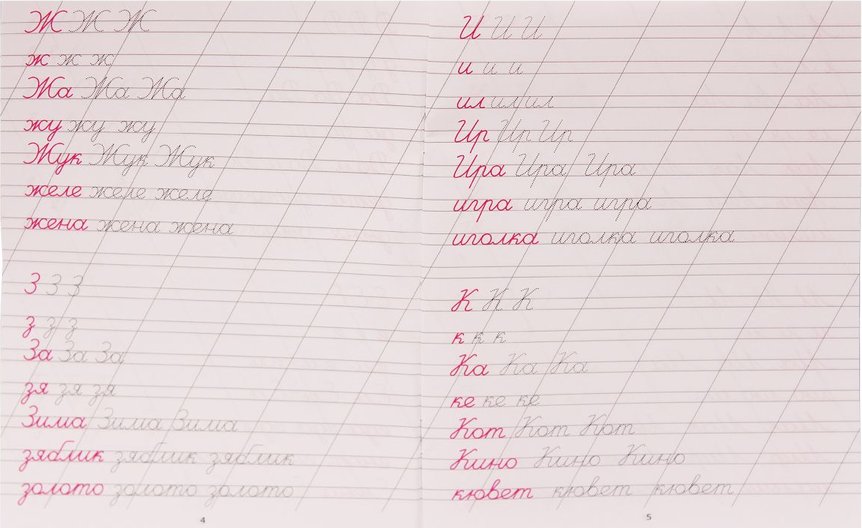 Ж Ж Ж
ж ж ж
Жа Жа Жа
жу жу жу
Жук Жук Жук
желе желе желе
жена жена жена
З З З
з з з
За За За
зя зя зя
Зима Зима Зима
зяблик зяблик зяблик
золото золото золото
4
И И И
и и и
ил ил ил
Ир Ир Ир
Ира Ира Ира
игра игра игра
иголка иголка иголка
К К К
к к к
Ка Ка Ка
ке ке ке
Кот Кот Кот
Кино Кино Кино
кювет кювет кювет
5